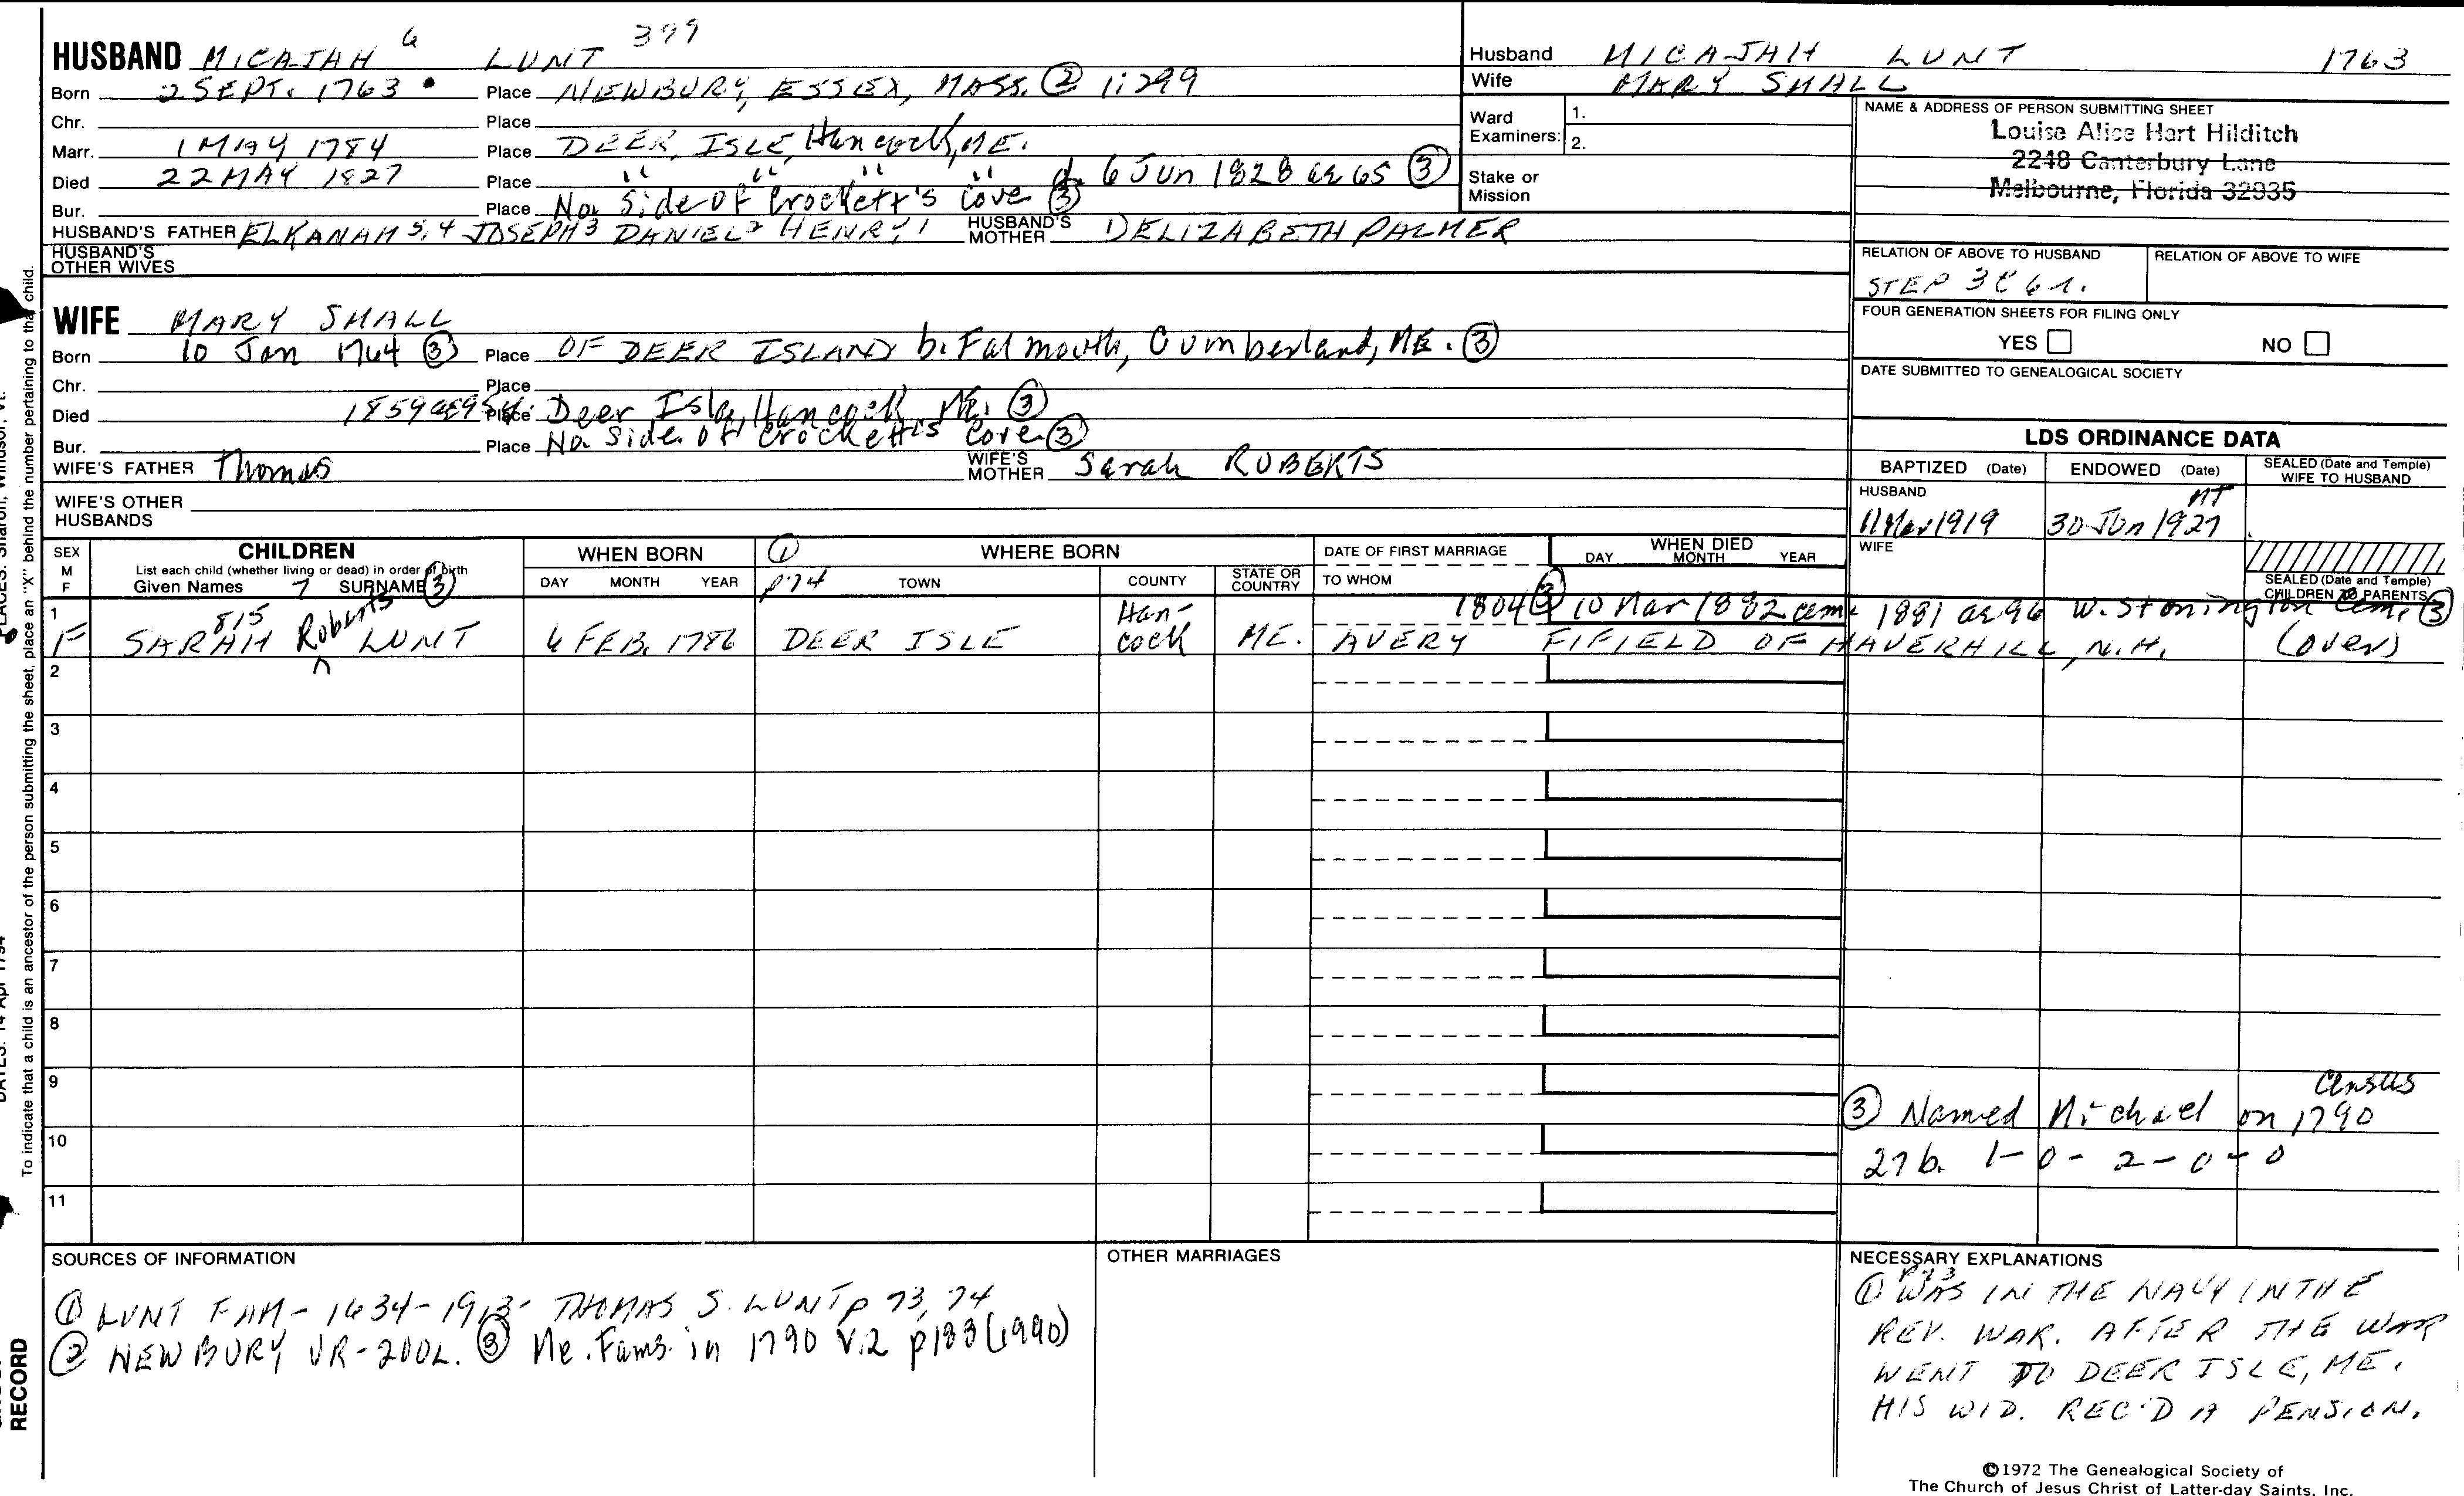 HUSBAND MICAJAH 6 LUNT 399
Born 2 SEPT. 1763 • Place NEWBURY, ESSEX, MASS. ② 1:299
Chr. Place
Marr. 1 MAY 1784 Place DEER, ISLE, Hancock, ME.
Died 22 MAY 1827 Place " " " " d. 6 Jun 1828 ae 65 ③
Bur. Place No. Side of Crockett's Cove ③
HUSBAND'S FATHER ELKANAH 5,4 JOSEPH 3 DANIEL 2 HENRY 1 HUSBAND'S MOTHER ELIZABETH PALMER
HUSBAND'S OTHER WIVES
Husband MICAJAH LUNT 1763
Wife MARY SMALL
Ward Examiners: 1.
2.
Stake or Mission
NAME & ADDRESS OF PERSON SUBMITTING SHEET
Louise Alice Hart Hilditch
2248 Canterbury Lane
Melbourne, Florida 32935
RELATION OF ABOVE TO HUSBAND RELATION OF ABOVE TO WIFE
STEP 3C 6 1.
FOUR GENERATION SHEETS FOR FILING ONLY
YES NO
DATE SUBMITTED TO GENEALOGICAL SOCIETY
WIFE MARY SMALL
Born 10 Jan 1764 ③ Place OF DEER ISLAND b. Falmouth, Cumberland, ME. ③
Chr. Place
Died 1859 ae 95y. Place Deer Isle, Hancock, ME. ③
Bur. Place No. Side of Crockett's Cove ③
WIFE'S FATHER Thomas WIFE'S MOTHER Sarah ROBERTS
WIFE'S OTHER HUSBANDS
LDS ORDINANCE DATA
BAPTIZED (Date) ENDOWED (Date) SEALED (Date and Temple) WIFE TO HUSBAND
HUSBAND
11 Mar 1919 30 Jun 1927
WIFE
SEALED (Date and Temple) CHILDREN TO PARENTS
SEX M F CHILDREN List each child (whether living or dead) in order of birth Given Names 7 SURNAME ③
WHEN BORN DAY MONTH YEAR
① p74 WHERE BORN TOWN COUNTY STATE OR COUNTRY
DATE OF FIRST MARRIAGE TO WHOM
WHEN DIED DAY MONTH YEAR
1 815 1804 ③ 10 Mar 1882 cem. 1881 ae 96 W. Stonington Cem. ③
F SARAH Roberts LUNT 6 FEB. 1786 DEER ISLE Hancock ME. AVERY FIFIELD OF HAVERHILL, N.H. (over)
2
3
4
5
6
7
8
9
10
11
③ Named Michael on 1790 Census
27b. 1-0-2-0-0
SOURCES OF INFORMATION
① LUNT FAM - 1634-1913 - THOMAS S. LUNT p 73, 74
② NEWBURY VR - 200L. ③ Me. Fams. in 1790 V.2 p183 (1990)
OTHER MARRIAGES
NECESSARY EXPLANATIONS
① p73 WAS IN THE NAVY IN THE
REV. WAR. AFTER THE WAR
WENT TO DEER ISLE, ME.
HIS WID. REC'D A PENSION.
©1972 The Genealogical Society of
The Church of Jesus Christ of Latter-day Saints, Inc.
To indicate that a child is an ancestor of the person submitting the sheet, place an "X" behind the number pertaining to that child.
PLACES: Sharon, Windsor, Vt.
DATES: 14 Apr 1794
RECORD